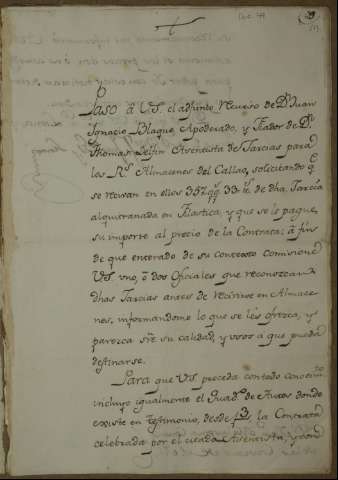 Paso à V.S. el adjunto Recurso de Dn. Juan
Ignacio Blaque Apoderado, y Fiador de Dn.
Thomas Delfin Asentista de Jarcias para
los Rs. Almacenes del Callao, solicitando qe.
se recivan en ellos 352 qq. 33 lb. de dha. Jarcia
alquitranada en Filastica, y que se le pague
su importe al precio de la Contrata: à fin
de que enterado de su contexto comisione
V.S. uno, ò dos Oficiales que reconozcan
dhas Jarcias antes de recivirse en Almace-
nes, informandome lo que se les ofrezca, y
parezca sre. su calidad, y usos à que pueda
destinarse.
Para que V.S. proceda con todo conocimto.
incluyo igualmente el Quadno. de Autos donde
existe en testimonio, desde f 3, la Contrata
celebrada por el citado Asentista, y